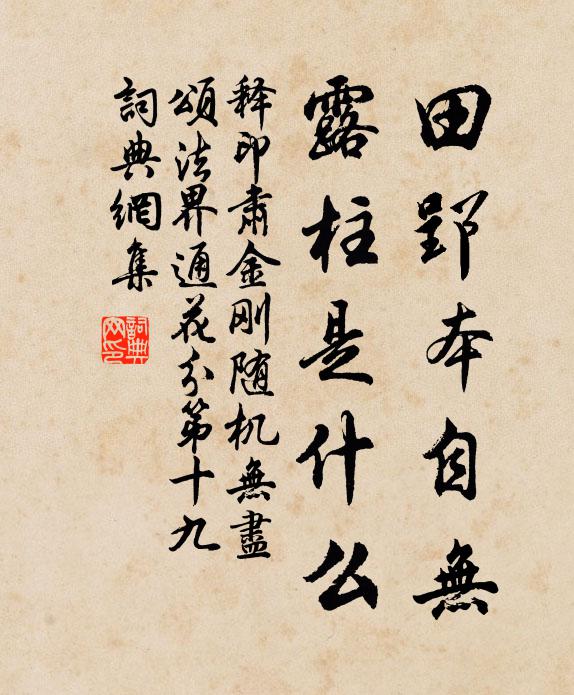 田郢本自無
露柱是什么
释印肅金刚随机無盡
頌法界通花分第十九
詞典網集
詞典网印